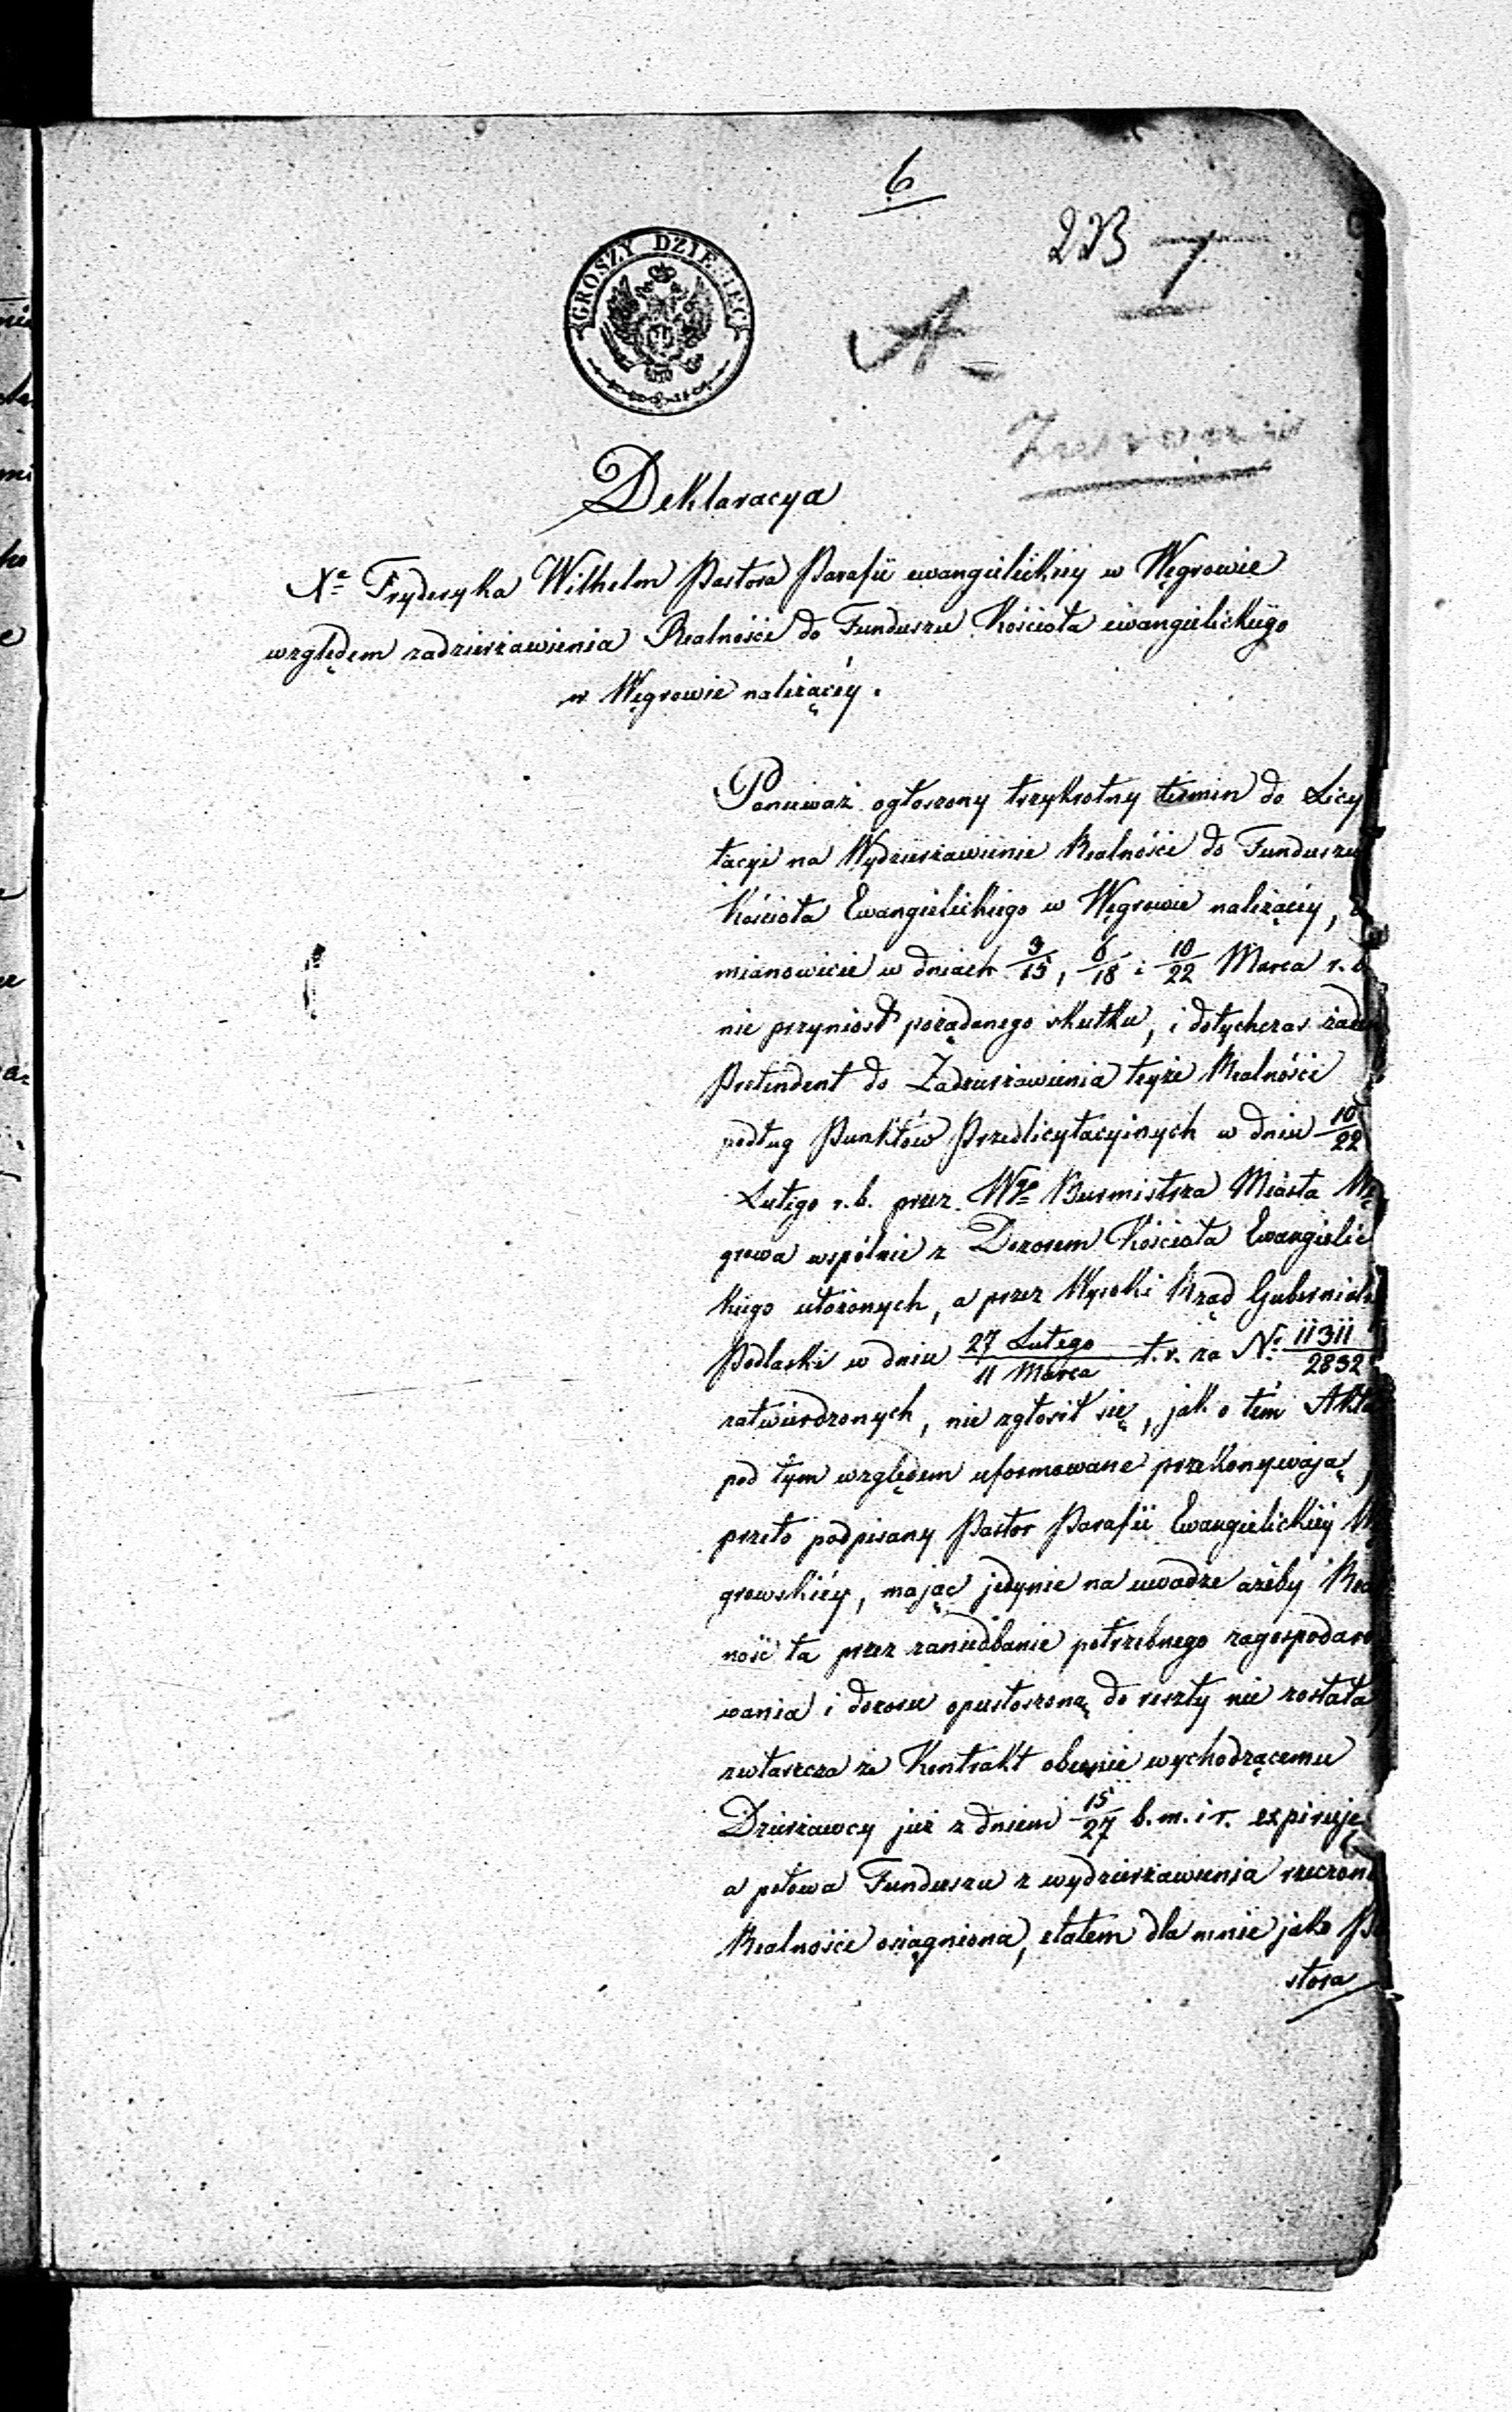 6
GROSZY DZIESIĘĆ
A
Deklaracya
Xa Fryderyka Wilhelm Pastora Parafii ewangielickiey w Węgrowie
względem zadzierżawienia Realności do Funduszu Kościoła ewangielickiego
w Węgrowie należącéy.
Ponieważ ogłoszony trzykrotny termin do Licy
tacyi na Wydzierżawienie Realności do Funduszu
Kościoła Ewangielickiego w Węgrowie należącéy,
mianowicie w dniach 3/15, 6/18 i 10/22 Marca r. b
nie przyniósł pożądanego skutku, i dotychczas żaden
Pretendent do Zadzierżawienia teyże Realności
podług Punktów Przedlicytacyinych w dniu 10/22
Lutego r. b. przez Wgo Burmistrza Miasta Wę
growa wspólnie z Dozorem Kościoła Ewangielic
kiego ułożonych, a przez Wysoki Rząd Gubernialny
Podlaski w dniu 27 Lutego/11 Marca t. r. za No 11311/2832
zatwierdzonych, nie zgłosił się, jak o tém Akta
pod tym względem uformowane przekonywają,
przeto podpisany Pastor Parafii Ewangielickiéy Wę
growskiéy, mając jedynie na uwadze ażeby Real
ność ta przez zaniedbanie potrzebnego zagospodaro
wania i dozoru opustoszoną do reszty nie została
zwłaszcza że Kontrakt obecnie wychodzącemu
Dzierżawcy już z dniem 15/27 b. m. i r. expiruje,
a połowa Funduszu z wydzierżawienia rzeczonéy
Realności osiągniona, etatem dla mnie jako Pa
stora